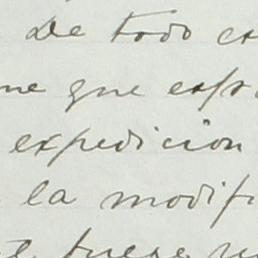 De todo es
me que espe
expedicion
la modifi
fuese